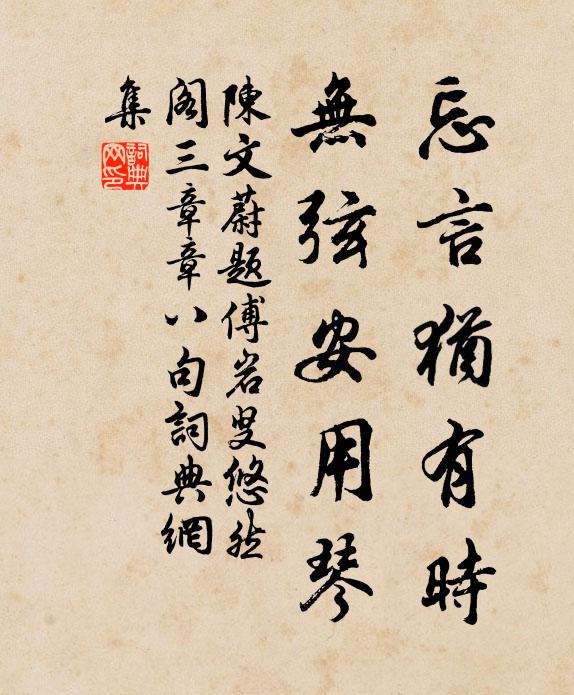 忘言猶有時
無弦安用琴
陳文蔚題傅岩叟悠然
閣三章章八句詞典網
集
詞典網印